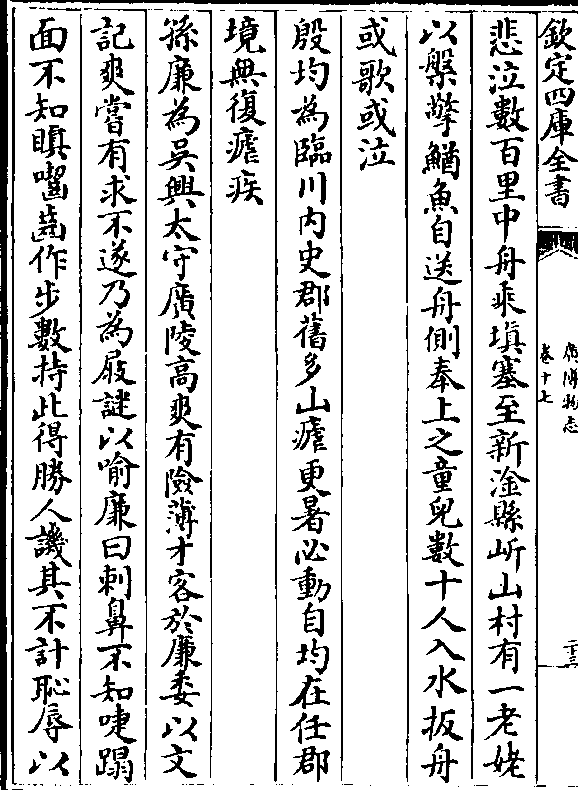 欽定四庫全書
廣博物志
卷十七
二十三
悲泣數百里中舟乘塡塞至新淦縣岓山村有一老姥
以槃擎鰌魚自送舟側奉上之童兒數十人入水扳舟
或歌或泣
殷均為臨川内史郡舊多山瘧更暑必動自均在任郡
境無復瘧疾
孫廉為吳興太守廣陵高爽有險薄才客於廉委以文
記爽嘗有求不遂乃為屐謎以喻廉曰刺鼻不知嚏蹋
面不知瞋嚙齒作步數持此得勝人譏其不計恥辱以